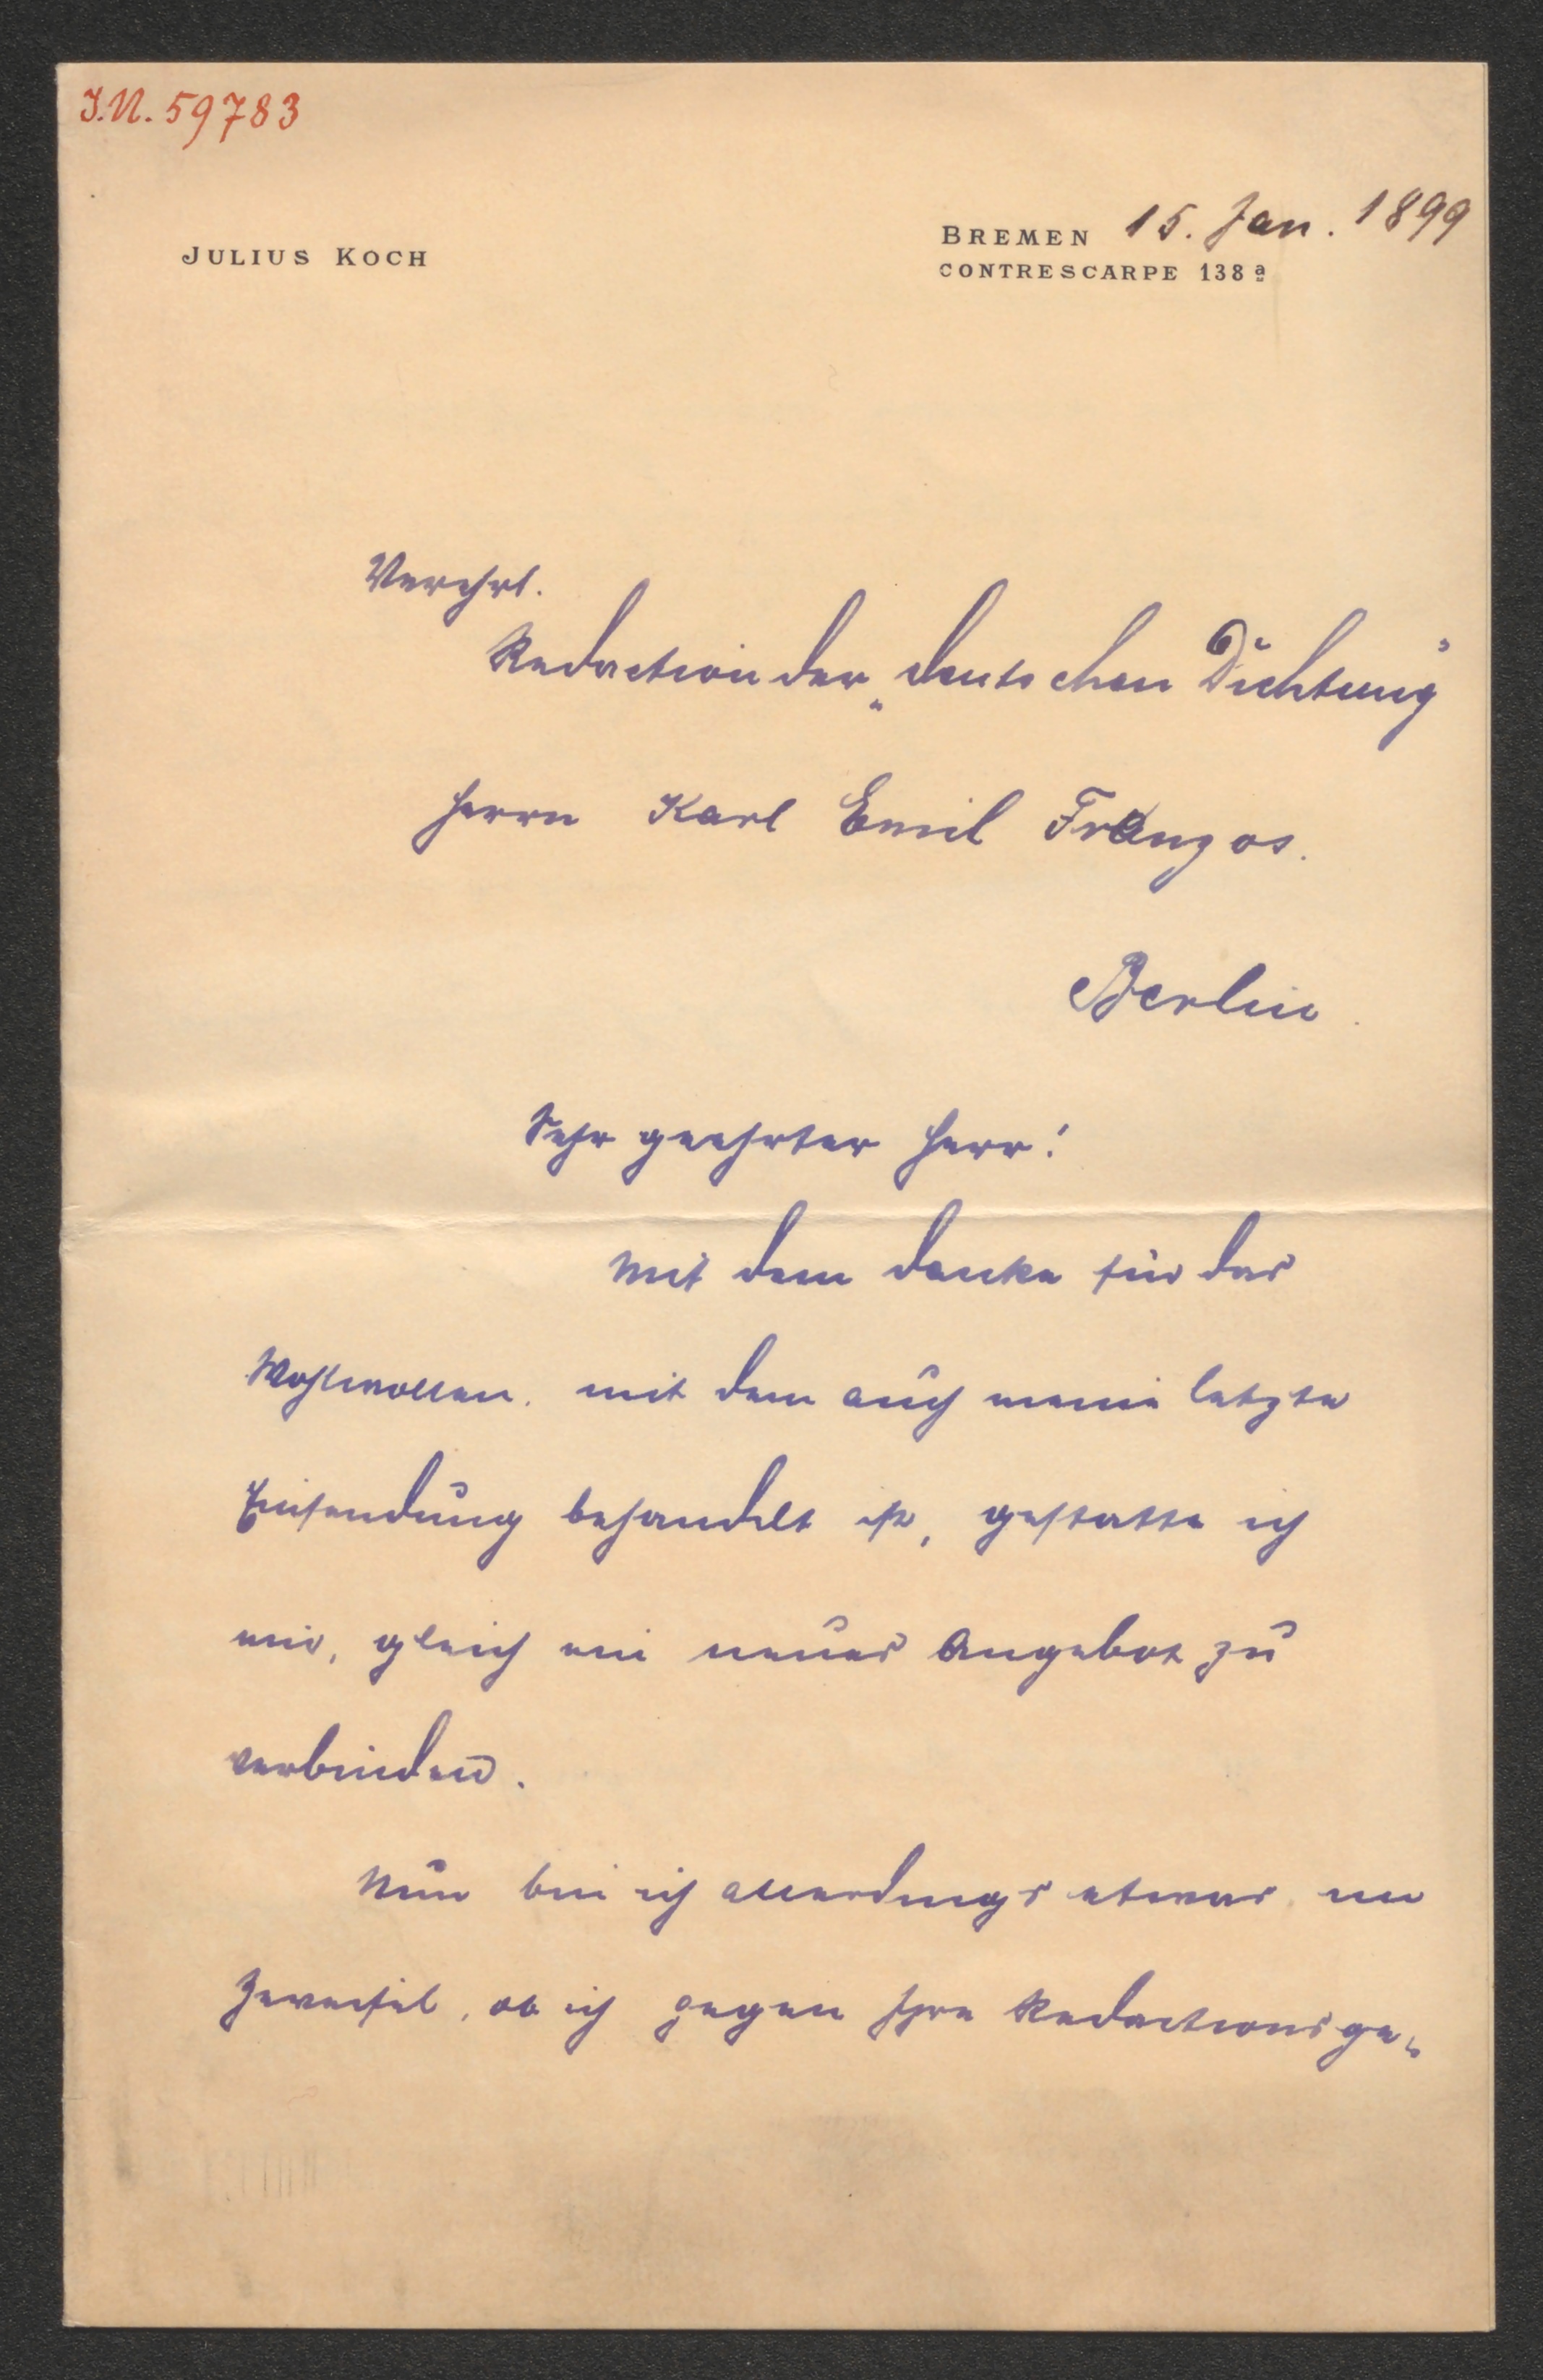 I.N. 59783
JULIUS KOCH
BREMEN 15. Jan. 1899
CONTRESCARPE 138 a
Verehrl.
Redaction der „deutschen Dichtung"
Herrn Karl Emil Franzos.
Berlin.
Sehr geehrter Herr!
Mit dem Danke für das
Wohlwollen, mit dem auch meine letzte
Einsendung behandelt ist, gestatte ich
mir, gleich ein neues Angebot zu
verbinden.
Nun bin ich allerdings etwas im
Zweifel, ob ich gegen Ihre Redactionsge-